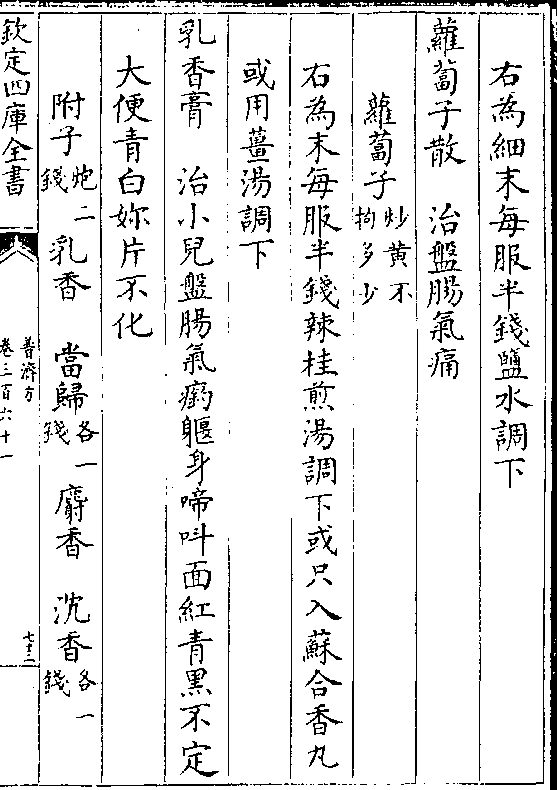 右為細末每服半錢鹽水調下
蘿蔔子散　治盤腸氣痛
蘿蔔子炒黄不拘多少
右為末每服半錢辣桂煎湯調下或只入蘇合香丸
或用薑湯調下
乳香膏　治小兒盤腸氣痛軀身啼呌面紅青黑不定
大便青白妳片不化
附子炮二錢　乳香　當歸各一錢　麝香　沈香各一錢
欽定四庫全書
普濟方
卷三百六十一
七十三